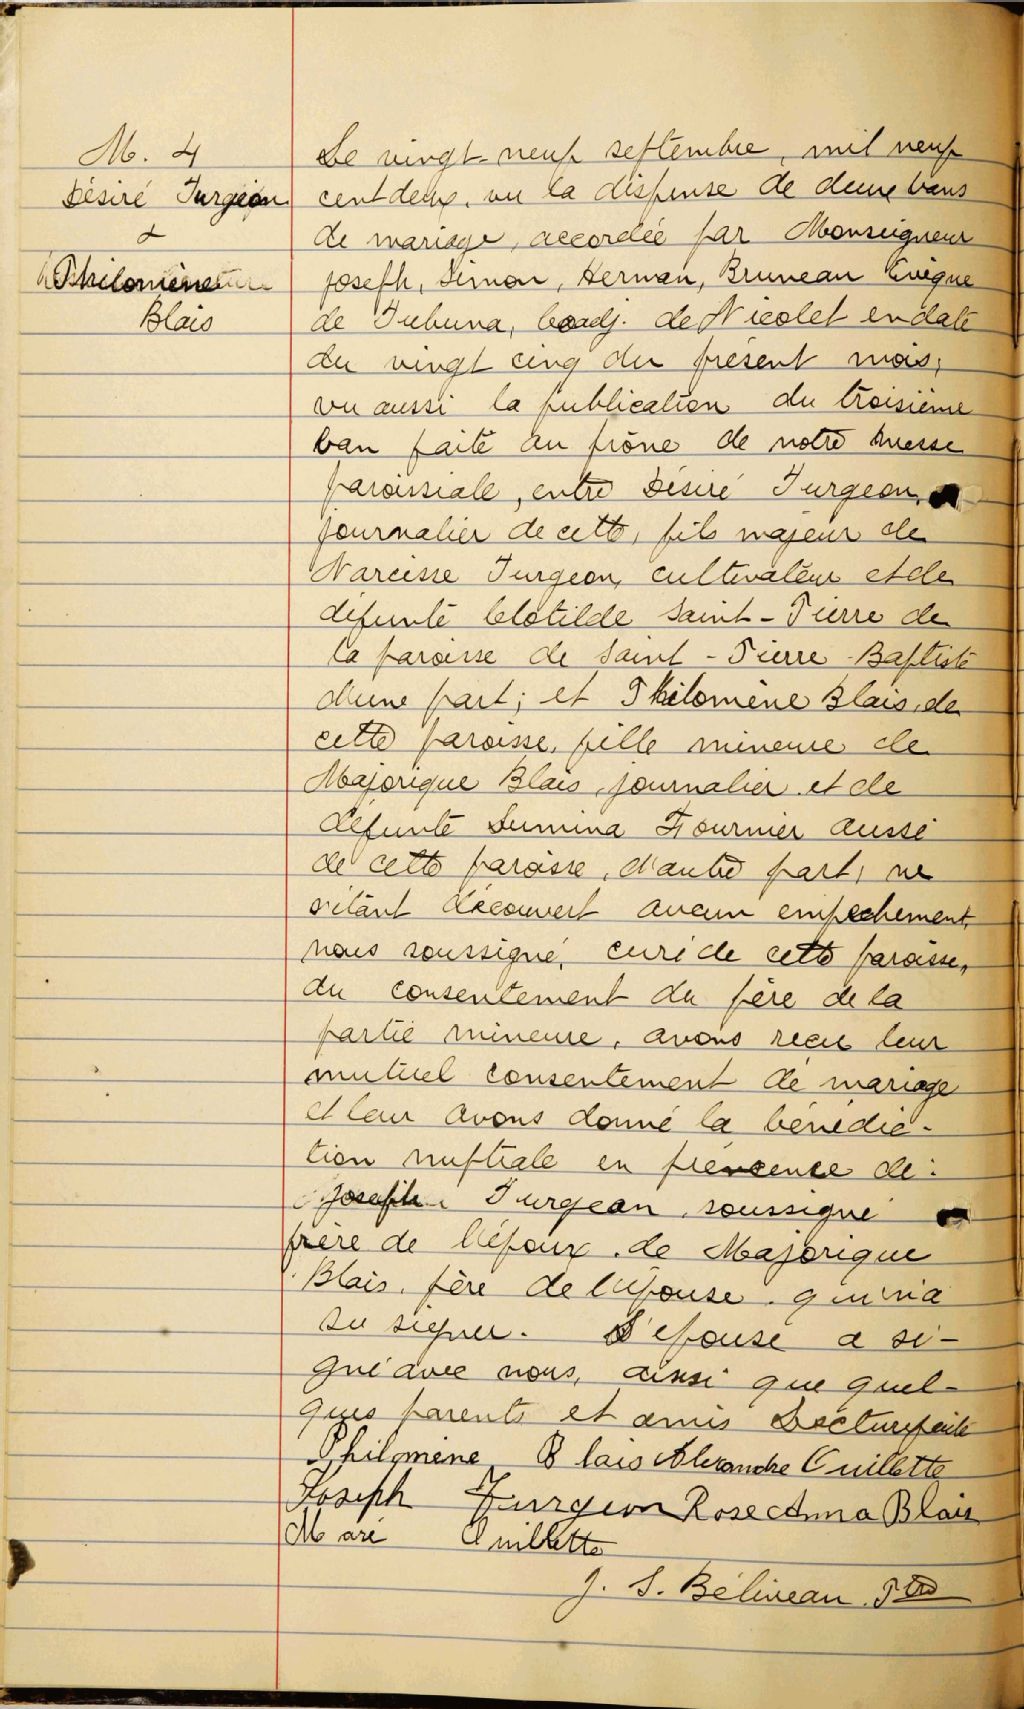 M. 4
Désiré Turgeon
&
Philomène
Blais
Le vingt-neuf septembre, mil neuf
cent deux, vu la dispense de deux bans
de mariage, accordée par Monseigneur
Joseph, Simon, Herman, Bruneau Evêque
de Tubuna, Coadj. de Nicolet en date
du vingt cinq du présent mois,
vu aussi la publication du troisième
ban faite au prône de notre messe
paroissiale, entre Désiré Turgeon,
journalier de cette, fils majeur de
Narcisse Turgeon, cultivateur et de
défunte Clotilde Saint-Pierre de
la paroisse de Saint-Pierre-Baptiste
d'une part; et Philomène Blais, de
cette paroisse, fille mineure de
Majorique Blais, journalier et de
défunte Lumina Fournier aussi
de cette paroisse, d'autre part, ne
s'étant découvert aucun empechement,
nous soussigné, curé de cette paroisse,
du consentement du père de la
partie mineure, avons reçu leur
mutuel consentement de mariage
et leur avons donné la bénédic-
tion nuptiale en présence de:
Joseph Turgeon, soussigné
frère de l'époux, de Majorique
Blais, père de l'épouse, qui n'a
su signer. L'épouse a si-
gné avec nous, ainsi que quel-
ques parents et amis Lecture faite
Philomène Blais Alexandre Ouillette
Joseph Turgeon Rose Anna Blais
Mari Ouillette
J. S. Béliveau Ptre